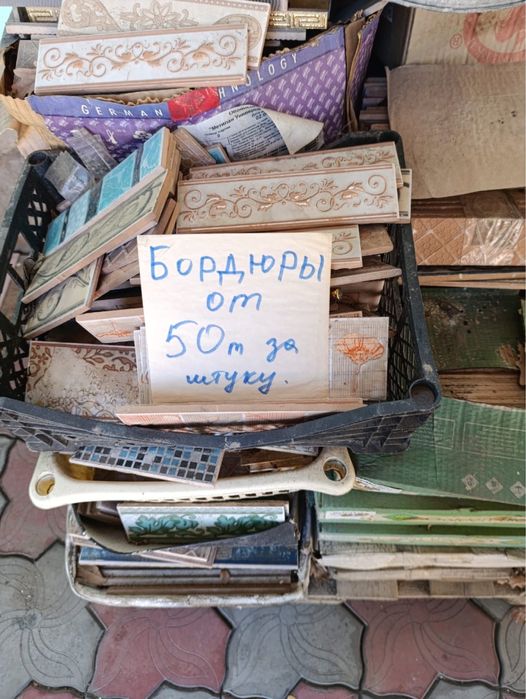 GERMAN TECHNOLOGY
Бордюры
от
50т за
штуку.